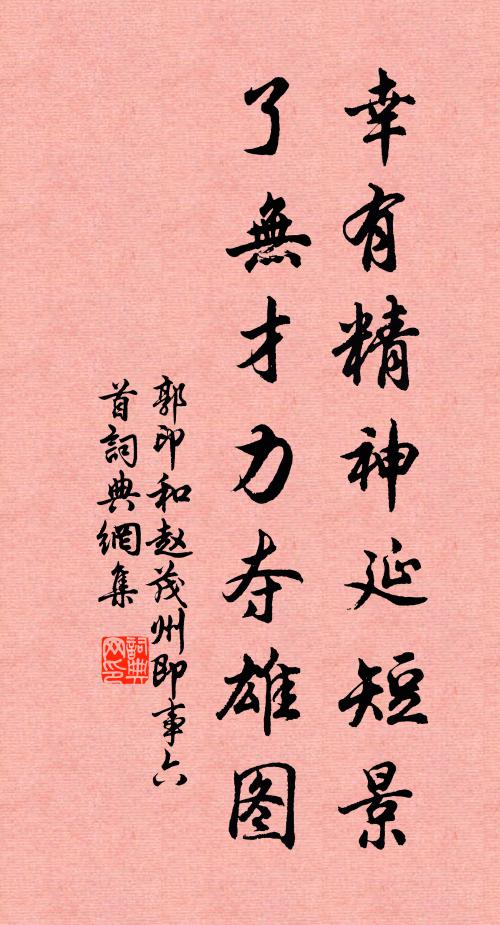 幸有精神延短景
了無才力夺雄图
郭印和赵茂州即事六
首詞典網集
詞典网印